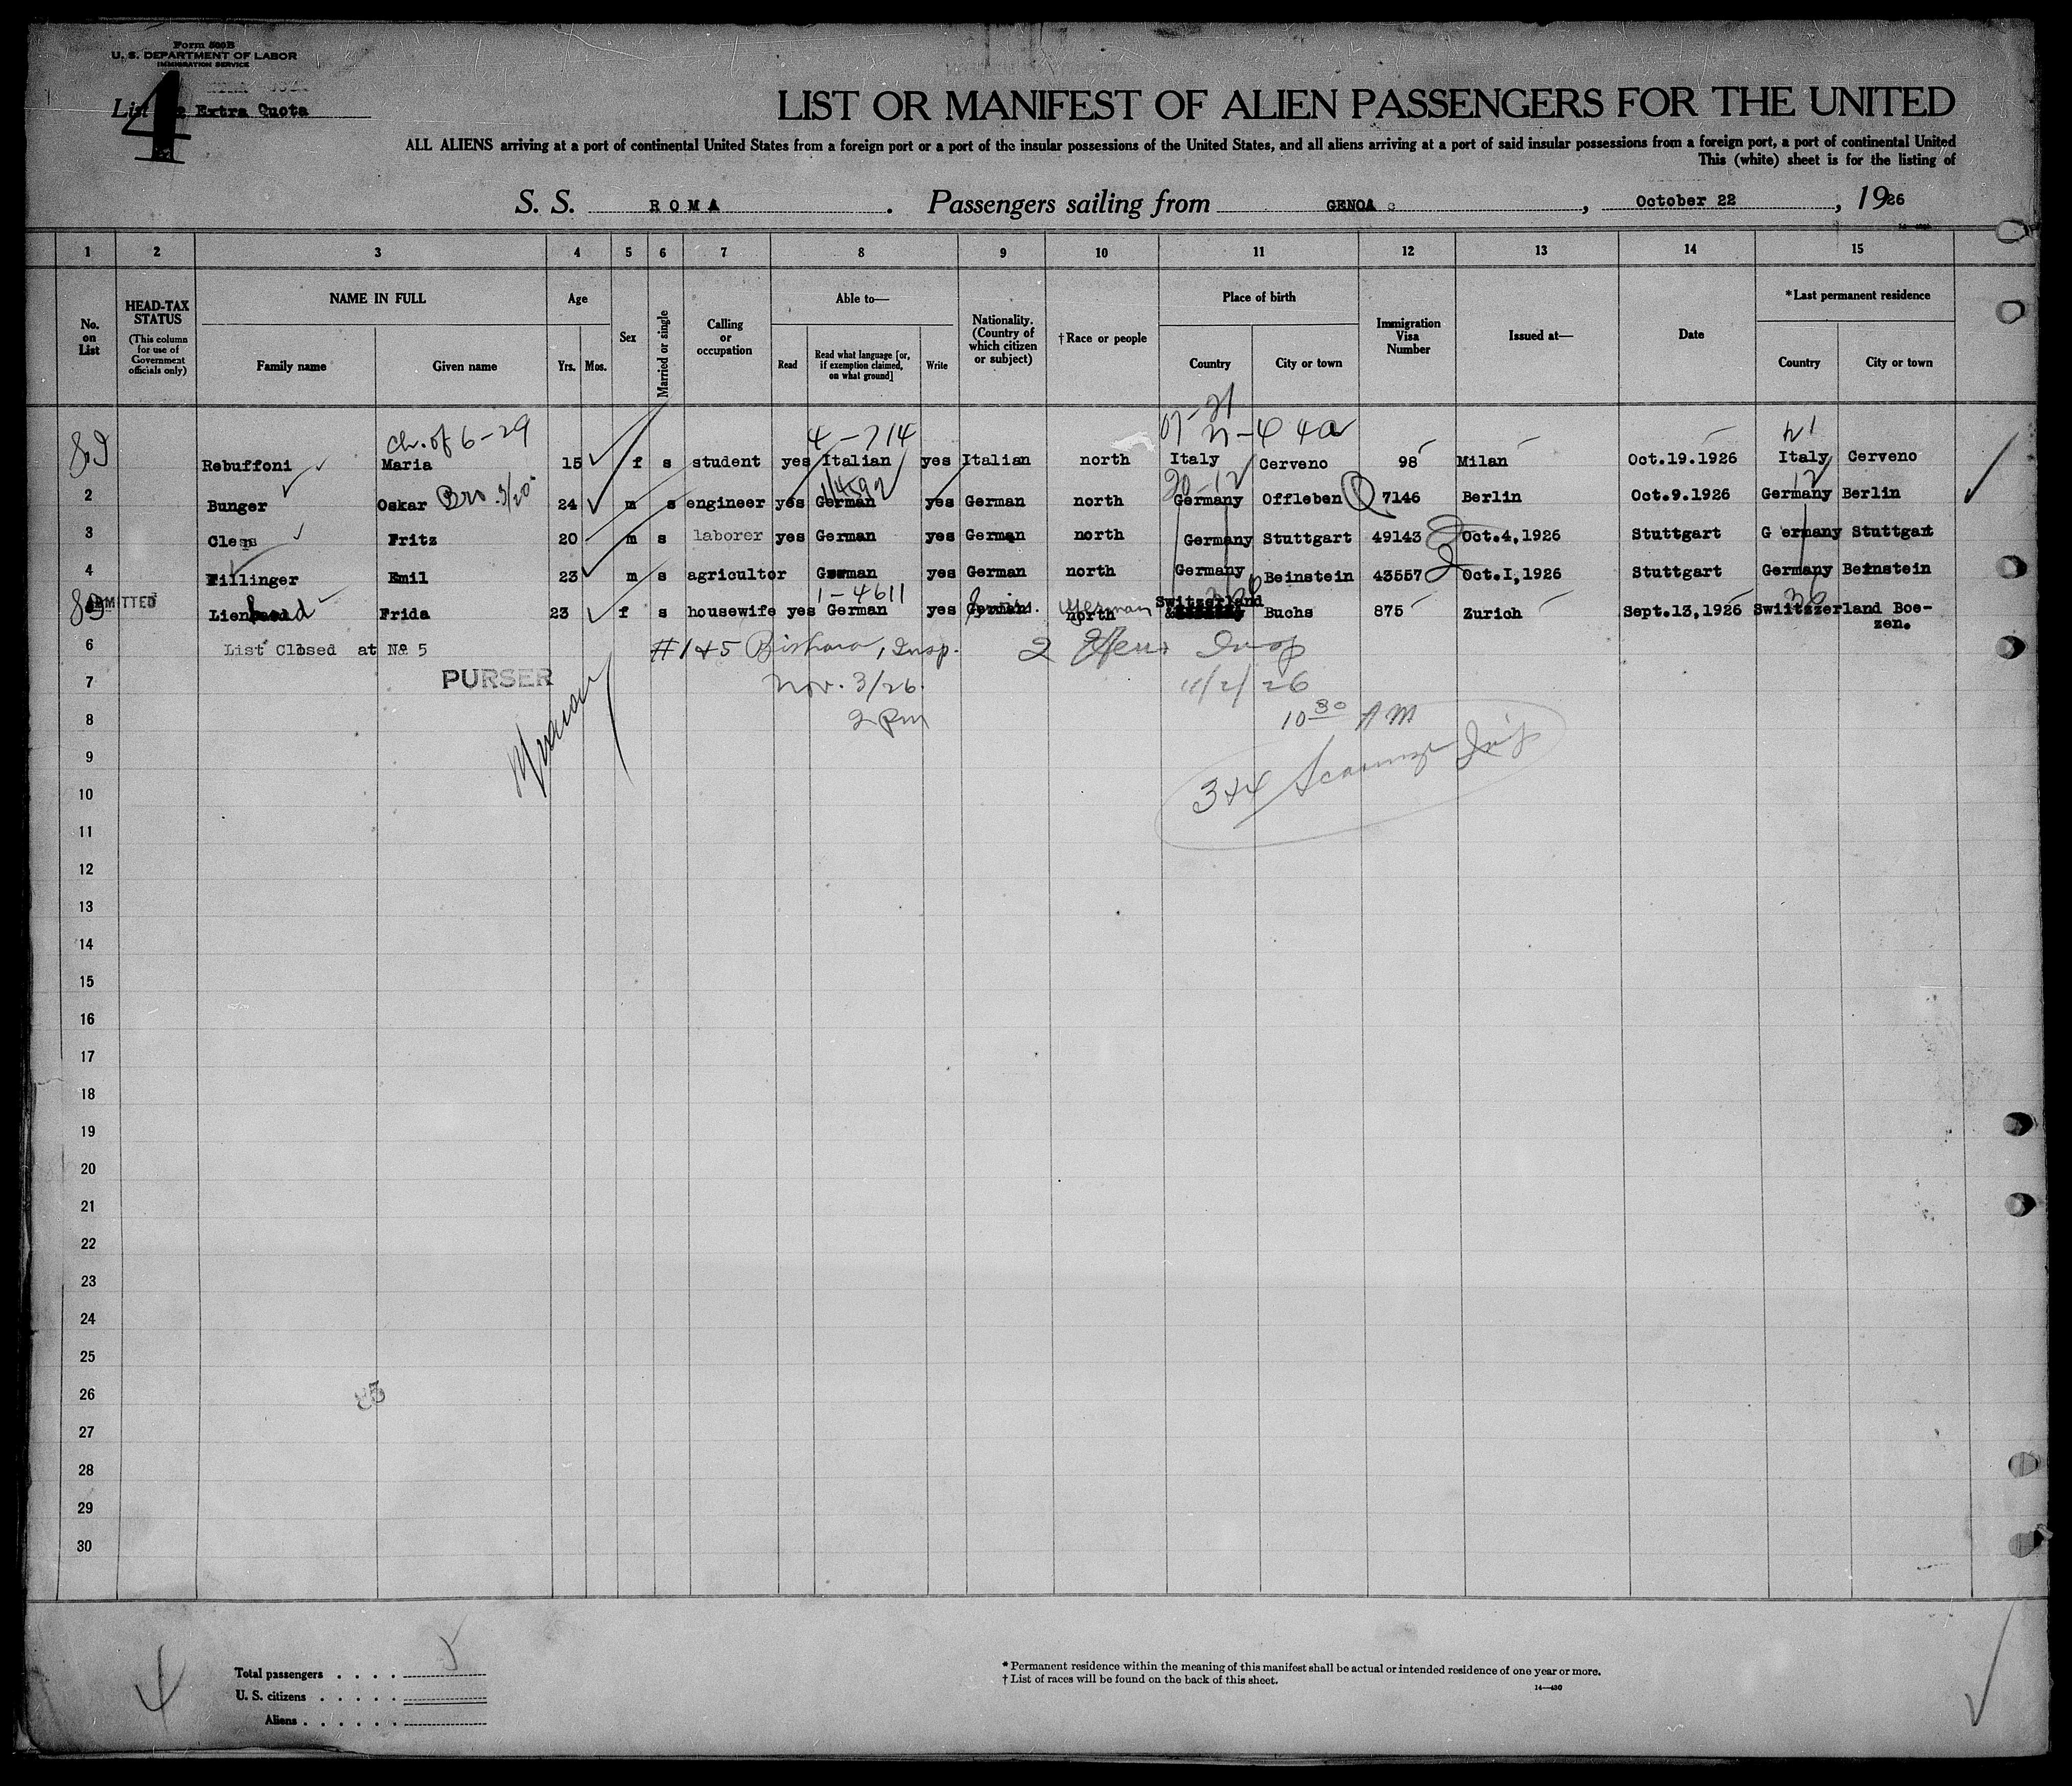 Form 500B
U. S. DEPARTMENT OF LABOR
IMMIGRATION SERVICE
4
List Extra Quota
LIST OR MANIFEST OF ALIEN PASSENGERS FOR THE UNITED
ALL ALIENS arriving at a port of continental United States from a foreign port or a port of the insular possessions of the United States, and all aliens arriving at a port of said insular possessions from a foreign port, a port of continental United
This (white) sheet is for the listing of
S. S. ROMA . Passengers sailing from GENOA , October 22 , 1926
1 2 3 4 5 6 7 8 9 10 11 12 13 14 15
No. on List HEAD-TAX STATUS (This column for use of Government officials only) NAME IN FULL Family name Given name Age Yrs. Mos. Sex Married or single Calling or occupation Able to— Read Read what language [or, if exemption claimed, on what ground] Write Nationality. (Country of which citizen or subject) †Race or people Place of birth Country City or town Immigration Visa Number Issued at— Date *Last permanent residence Country City or town
ch. of 6-29 4-714
Rebuffoni Maria 15 f s student yes Italian yes Italian north Italy Cerveno 98 Milan Oct.19.1926 Italy Cerveno
20-12 12
2 Bunger Oskar Bro. 3/20 24 m s engineer yes German yes German north Germany Offleben 7146 Berlin Oct.9.1926 Germany Berlin
3 Cless Fritz 20 m s laborer yes German yes German north Germany Stuttgart 49143 Oct.4,1926 Stuttgart G ermany Stuttgart
4 Fillinger Emil 23 m s agricultor German yes German north Germany Beinstein 43557 Oct.I,1926 Stuttgart Germany Beinstein
1-4611
ADMITTED Lienhard Frida 23 f s housewife yes German yes German German north Switzerland Buchs 875 Zurich Sept.13,1926 Swiitszerland Boe-
zen.
6 List Closed at No 5 #1&5 Bishara, Insp. 2 Insp
7 PURSER Nov. 3/26. 11/2/26
8 2 Pm 10 30 AM
9
3&4 Insp
10
11
12
13
14
15
16
17
18
19
20
21
22
23
24
25
26
27
28
29
30
Total passengers . . . . 5
U. S. citizens . . . . .
Aliens . . . . . .
4
* Permanent residence within the meaning of this manifest shall be actual or intended residence of one year or more.
† List of races will be found on the back of this sheet.
14—430